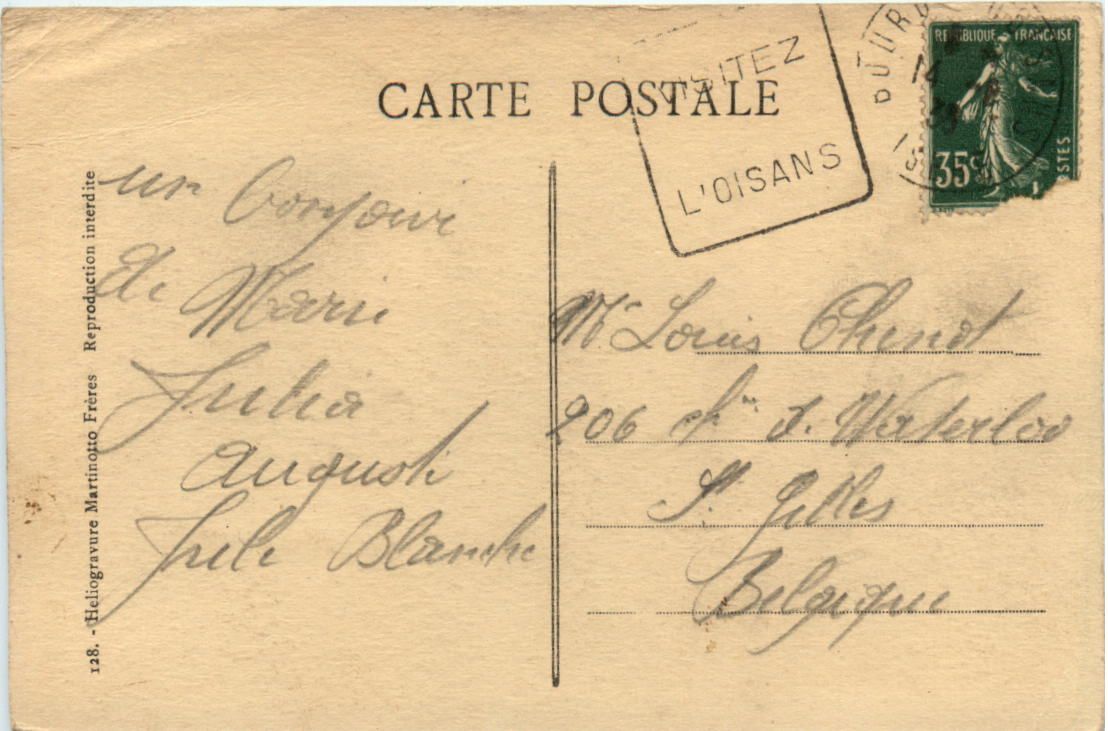 CARTE POSTALE
VISITEZ
L'OISANS
RÉPUBLIQUE FRANÇAISE
14
35c
POSTES
128. - Heliogravure Martinotto Frères Reproduction interdite
un bonjour
de Marie
Julia
Auguste
Jule Blanche
Mr Louis
206 chée d. Waterloo
St. Gilles
Belgique